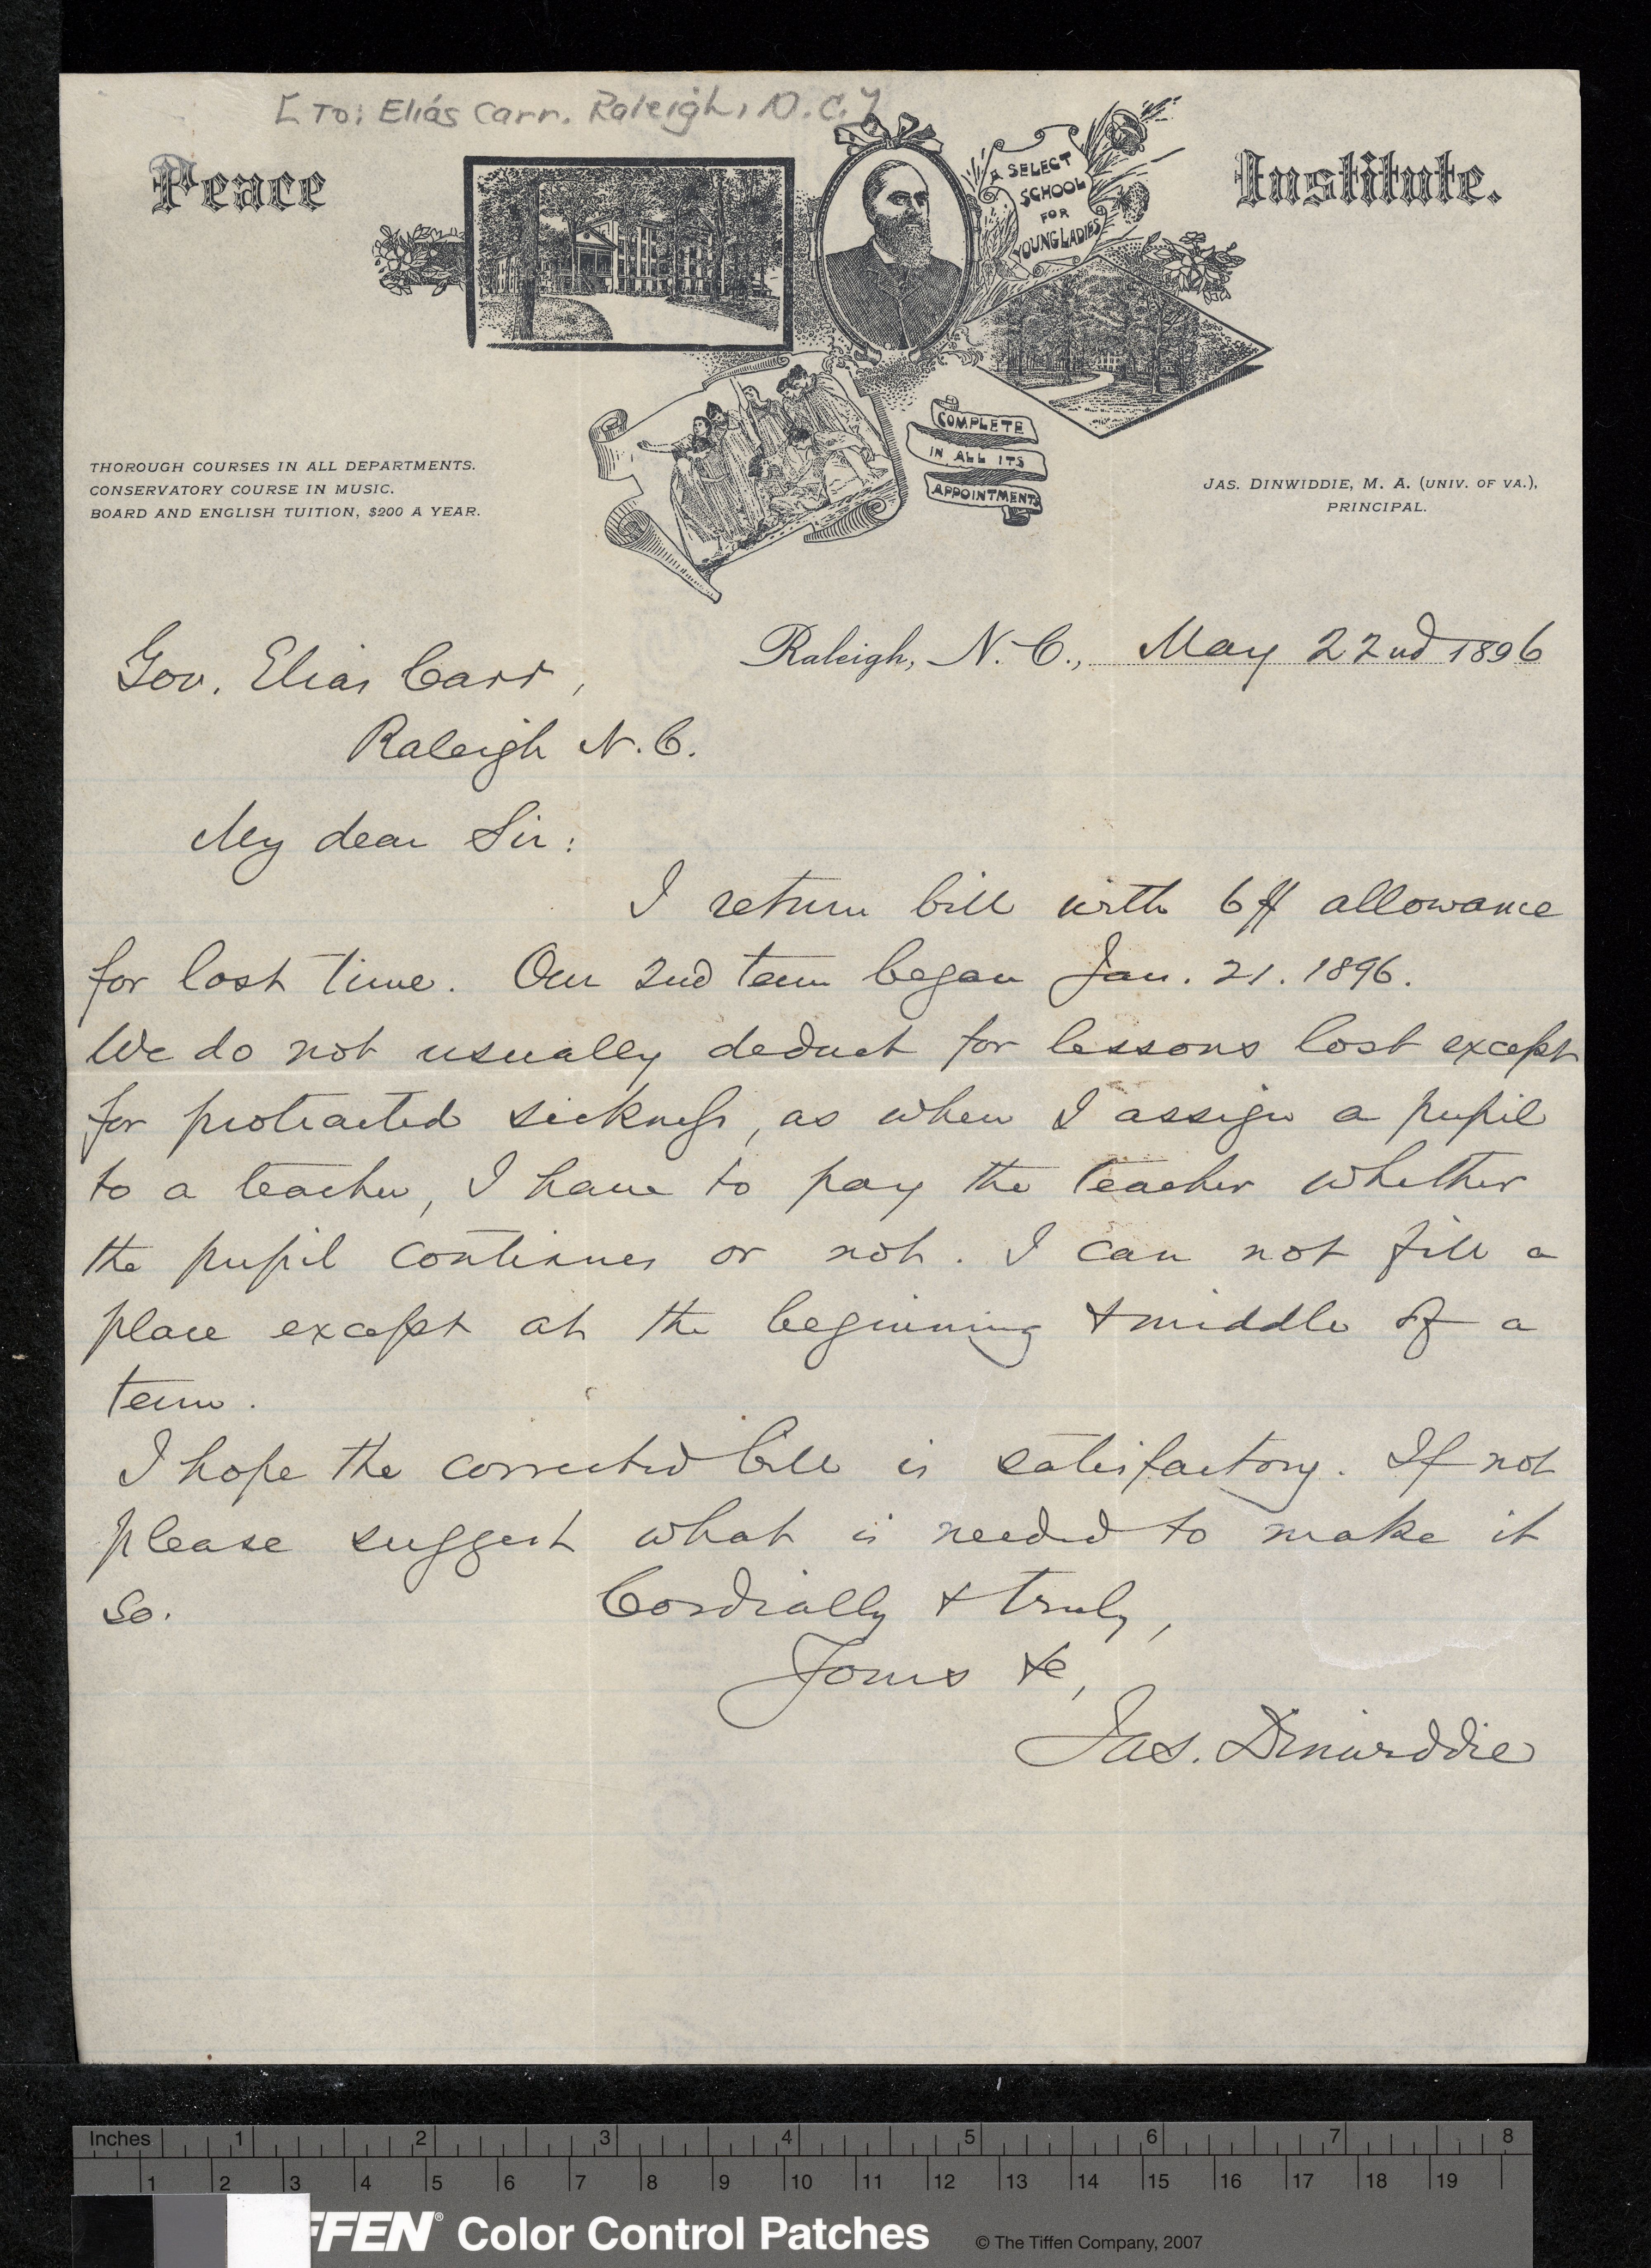 [To: Elias Carr. Raleigh, N.C.]
Peace Institute.
A SELECT
SCHOOL
FOR
YOUNG LADIES
COMPLETE
IN ALL ITS
APPOINTMENTS
THOROUGH COURSES IN ALL DEPARTMENTS.
CONSERVATORY COURSE IN MUSIC.
BOARD AND ENGLISH TUITION, $200 A YEAR.
JAS. DINWIDDIE, M. A. (UNIV. OF VA.),
PRINCIPAL.
Raleigh, N. C., May 22nd 1896
Gov. Elias Carr,
Raleigh N.C.
My dear Sir:
I return bill with 6 allowance
for lost time. Our 2nd term began Jan. 21. 1896.
We do not usually deduct for lessons lost except
for protracted sickness, as when I assign a pupil
to a teacher, I have to pay the teacher whether
the pupil continues or not. I can not fill a
place except at the beginning & middle of a
term.
I hope the corrected bill is satisfactory. If not
please suggest what is needed to make it
so. Cordially & truly,
Yours &c,
Jas. Dinwiddie
Inches 1 2 3 4 5 6 7 8
1 2 3 4 5 6 7 8 9 10 11 12 13 14 15 16 17 18 19
FFEN® Color Control Patches © The Tiffen Company, 2007